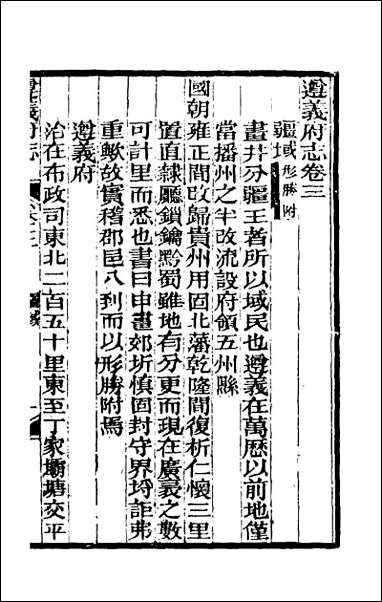 遵義府志卷三
疆域形勝附
畫井分疆王者所以域民也遵義在萬厯以前地僅
當播州之半改流設府領五州縣
國朝雍正間改歸貴州用固北藩乾隆間復析仁懷三里
置直隸廳鎖鑰黔蜀雖地有分更而現在廣袤之數
可計里而悉也書曰申畫郊圻慎固封守界埒詎弗
重歟故實稽郡邑八到而以形勝附焉
遵義府
治在布政司東北二百五十里東至丁家壩塘交平